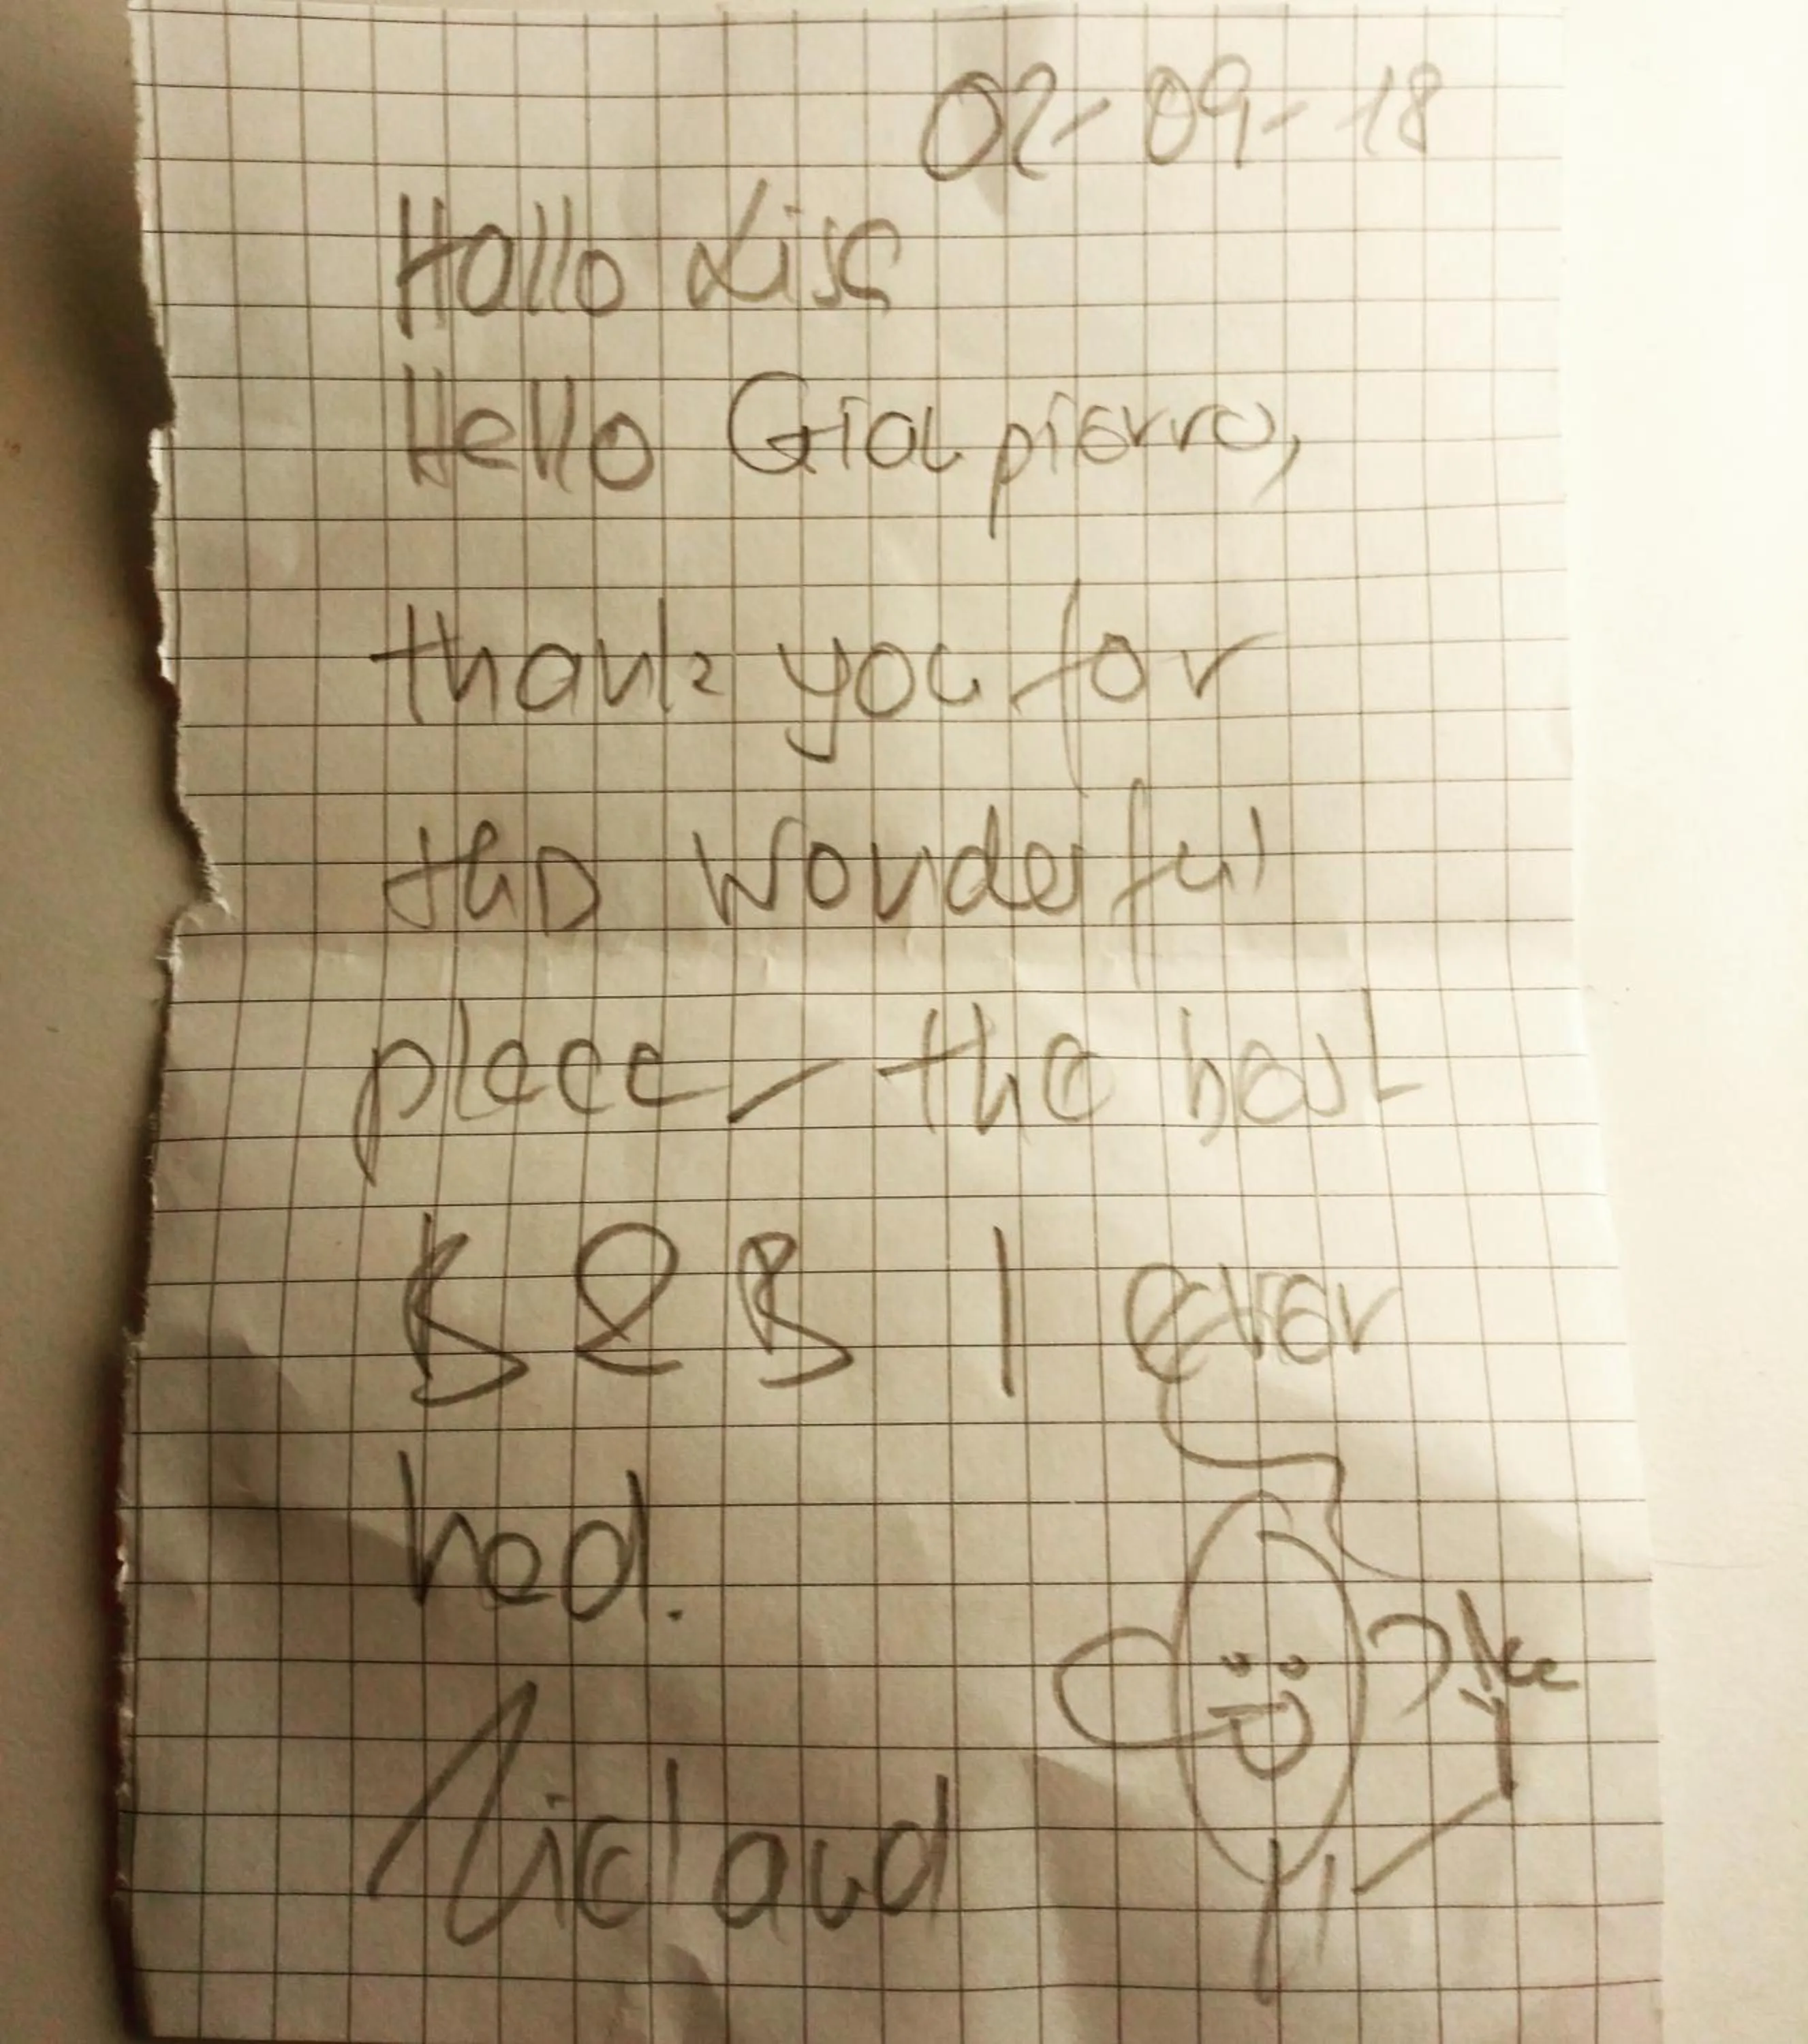 02-09-18
Hallo Lisa
Hello Gianpierro,
thank you for
this wonderful
place - the best
B & B I ever
had.